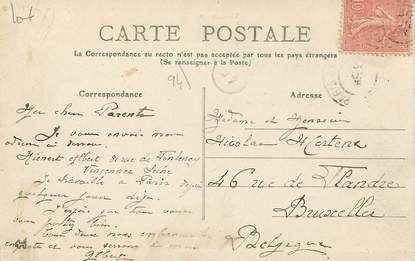 lot
CARTE POSTALE
La Correspondance au recto n'est pas acceptée par tous les pays étrangers
(Se renseigner à la Poste)
94
Correspondance
Adresse
Mes chers Parents
Je vous envois mon
adresse ci dessous.
Hienert Albert 81 rue de Fontenay
Vincennes Seine
Je travaille a Paris depuis
quelques jours deja.
J'espère que vous vous
portez bien.
et vous serrons la main
Albert
Madame et Monsieur
Nicolas Mertens
46 rue de Flandre
Bruxelles
Belgique